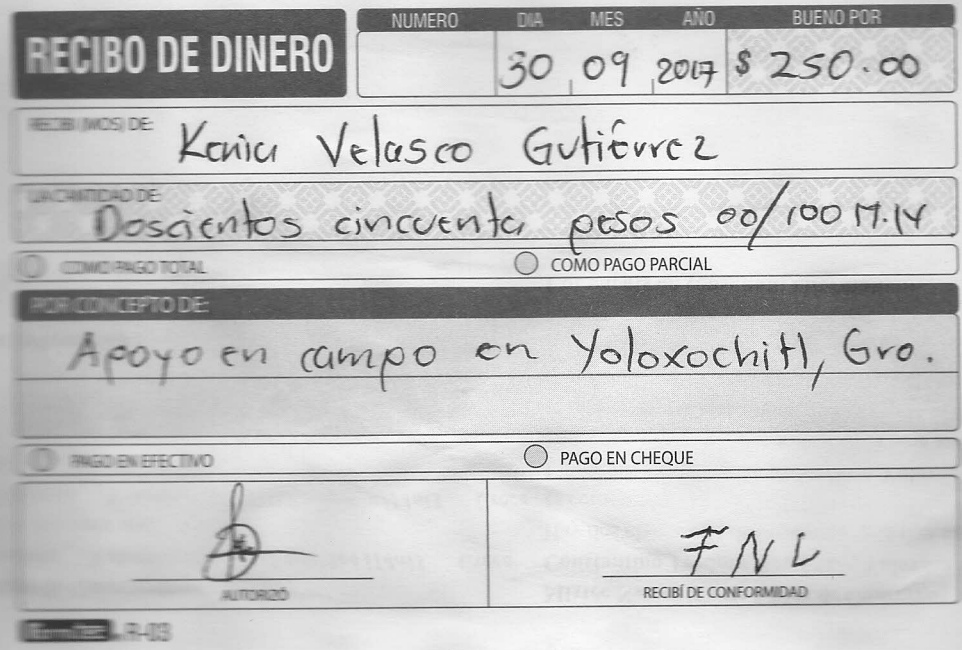 RECIBO DE DINERO
NUMERO DIA MES AÑO BUENO POR
30 09 2017 $ 250.00
RECIBI (MOS) DE: Kenia Velasco Gutiérrez
LA CANTIDAD DE:
Doscientos cincuenta pesos 00/100 M.N
COMO PAGO TOTAL COMO PAGO PARCIAL
POR CONCEPTO DE:
Apoyo en campo en Yoloxochitl, Gro.
PAGO EN EFECTIVO PAGO EN CHEQUE
FNL
AUTORIZÓ RECIBÍ DE CONFORMIDAD
R-03